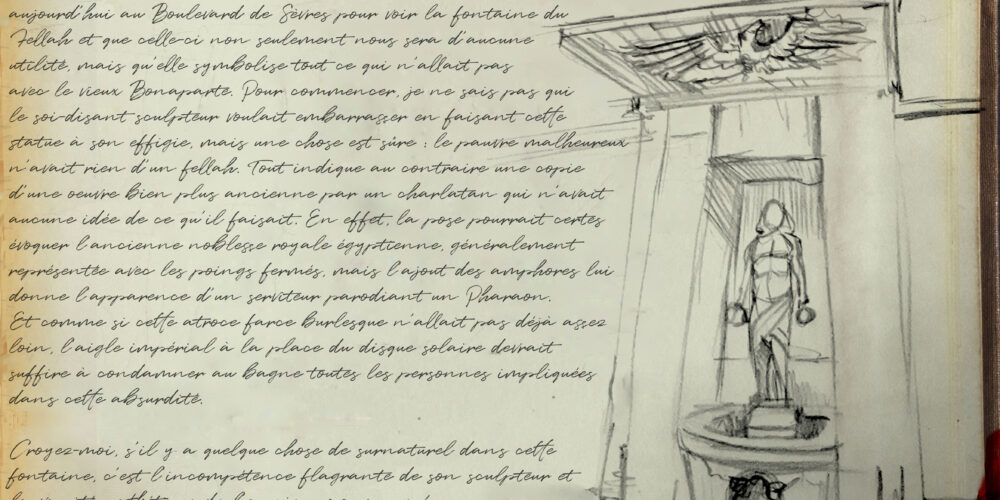 aujourd'hui au Boulevard de Sèvres pour voir la fontaine du
Fellah et que celle-ci non seulement nous sera d'aucune
utilité, mais qu'elle symbolise tout ce qui n'allait pas
avec le vieux Bonaparte. Pour commencer, je ne sais pas qui
le soi-disant sculpteur voulait embarrasser en faisant cette
statue à son effigie, mais une chose est sûre : le pauvre malheureux
n'avait rien d'un fellah. Tout indique au contraire une copie
d'une oeuvre bien plus ancienne par un charlatan qui n'avait
aucune idée de ce qu'il faisait. En effet, la pose pourrait certes
évoquer l'ancienne noblesse royale égyptienne, généralement
représentée avec les poings fermés, mais l'ajout des amphores lui
donne l'apparence d'un serviteur parodiant un Pharaon.
Et comme si cette atroce farce burlesque n'allait pas déjà assez
loin, l'aigle impérial à la place du disque solaire devrait
suffire à condamner au bagne toutes les personnes impliquées
dans cette absurdité.
Croyez-moi, s'il y a quelque chose de surnaturel dans cette
fontaine, c'est l'incompétence flagrante de son sculpteur et